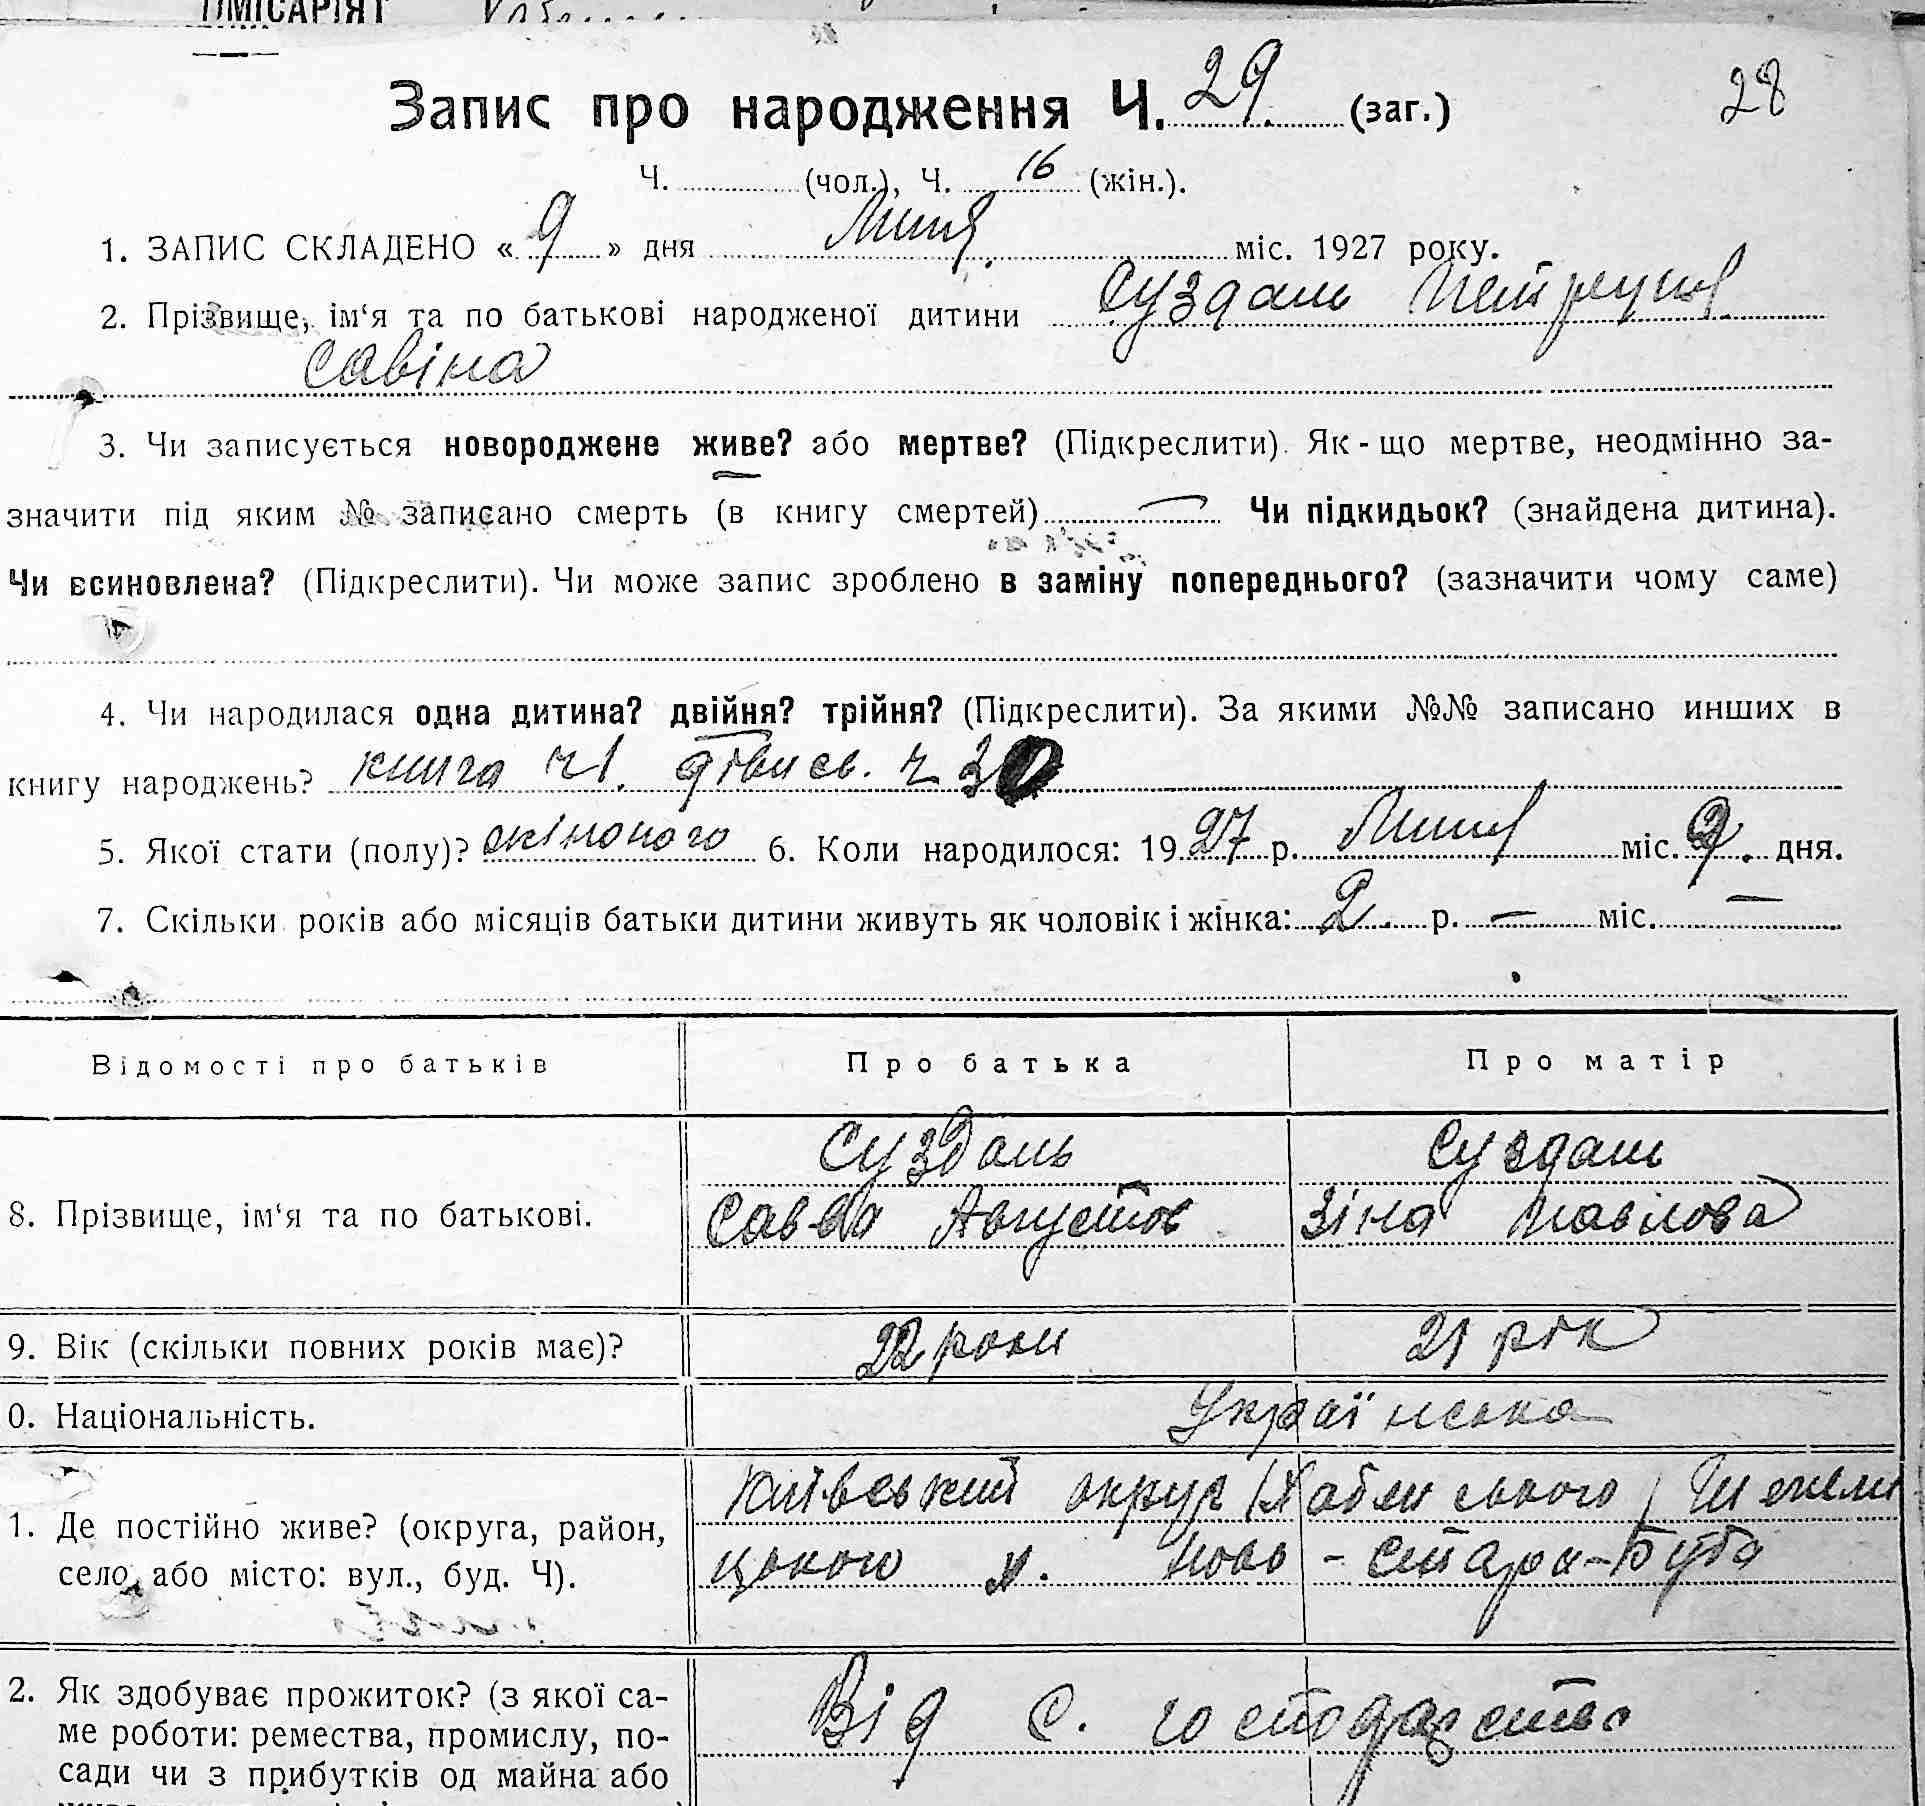 Запис про народження Ч. 29. (заг.) 28
Ч. (чол.), Ч. 16 (жін.).
1. ЗАПИС СКЛАДЕНО « 9 » дня Липня міс. 1927 року.
2. Прізвище, ім‘я та по батькові народженої дитини Суздаль Петруня
Савіна
3. Чи записується новороджене живе? або мертве? (Підкреслити). Як-що мертве, неодмінно за-
значити під яким № записано смерть (в книгу смертей) — Чи підкидьок? (знайдена дитина).
Чи всиновлена? (Підкреслити). Чи може запис зроблено в заміну попереднього? (зазначити чому саме)
4. Чи народилася одна дитина? двійня? трійня? (Підкреслити). За якими №№ записано инших в
книгу народжень? книга ч 1. ч 30
5. Якої стати (полу)? жіночого 6. Коли народилося: 1927 р. Липня міс. 9. дня.
7. Скільки років або місяців батьки дитини живуть як чоловік і жінка: 2. р. — міс. —
Відомості про батьків Про батька Про матір
Суздаль Суздаль
8. Прізвище, ім‘я та по батькові. Савва Августов Зіна Павлова
9. Вік (скільки повних років має)? 22 роки 21 рік
0. Національність. Українська
Київський округ Хабенського
1. Де постійно живе? (округа, район,
цького х. Ново - Стара-Буда
село, або місто: вул., буд. Ч).
2. Як здобуває прожиток? (з якої са- Від с. господарства
ме роботи: ремества, промислу, по-
сади чи з прибутків од майна або